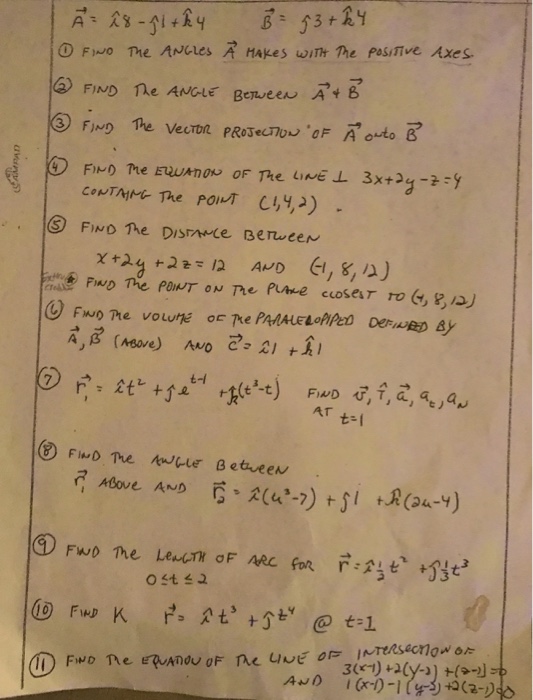 A⃗ = î8 - ĵ1 + k̂4 B⃗ = ĵ3 + k̂4
① FIND THE ANGLES A⃗ MAKES WITH THE POSITIVE AXES.
② FIND THE ANGLE BETWEEN A⃗ + B⃗
③ FIND THE VECTOR PROJECTION OF A⃗ onto B⃗
④ FIND THE EQUATION OF THE LINE ⊥ 3x+2y-z=4
CONTAING THE POINT (1,4,2).
⑤ FIND THE DISTANCE BETWEEN
x+2y+2z=12 AND (-1,8,12)
* FIND THE POINT ON THE PLANE CLOSEST TO (-1,8,12)
⑥ FIND THE VOLUME OF THE PARALELOPIPED DEFINED BY
A⃗, B⃗ (ABOVE) AND C⃗ = î1 + k̂1
⑦ r⃗₁ = ît² + ĵe^(t-1) + k̂(t³-t) FIND v⃗, T̂, a⃗, aₜ, a_N
AT t=1
⑧ FIND THE ANGLE BETWEEN
r⃗₁ ABOVE AND r⃗₂ = î(u³-7) + ĵ1 + k̂(2u-4)
⑨ FIND THE LENGTH OF ARC FOR r⃗ = î½t² + ĵ⅓t³
0≤t≤2
⑩ FIND K r⃗ = ît³ + ĵt⁴ @ t=1
⑪ FIND THE EQUATION OF THE LINE OF INTERSECTION OF
3(x-1)+2(y-2)+(z-1)=0
AND 1(x-1)-1(y-2)+2(z-1)=0